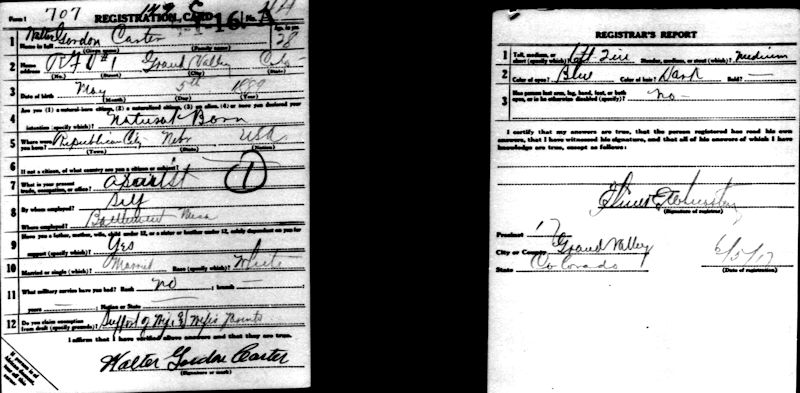 Form 1 707 REGISTRATION CARD No. 
Age, in yrs.
1 Name in full Walter Gordon Carter 28
(Given name) (Family name)
2 Home address RFD #1 Grand Valley Colo
(No.) (Street) (City) (State)
3 Date of birth May 5th 1889
(Month) (Day) (Year)
Are you (1) a natural-born citizen, (2) a naturalized citizen, (3) an alien, (4) or have you declared your
4 intention (specify which)? Natural Born
5 Where were you born? Republican City Nebr USA
(Town) (State) (Nation)
6 If not a citizen, of what country are you a citizen or subject?
7 What is your present trade, occupation, or office? Apiarist 1
8 By whom employed? Self
Where employed? Mesa
Have you a father, mother, wife, child under 12, or a sister or brother under 12, solely dependent on you for
9 support (specify which)? Yes
10 Married or single (which)? Married Race (specify which)? White
11 What military service have you had? Rank no ; branch — ;
years — ; Nation or State —
12 Do you claim exemption from draft (specify grounds)? Support of Wife & Wife's Parents
I affirm that I have verified above answers and that they are true.
Walter Gordon Carter
(Signature or mark)
REGISTRAR'S REPORT
1 Tall, medium, or short (specify which)? Slender, medium, or stout (which)? Medium
2 Color of eyes? Blue Color of hair? Dark Bald? —
3 Has person lost arm, leg, hand, foot, or both eyes, or is he otherwise disabled (specify)? No —
I certify that my answers are true, that the person registered has read his own
answers, that I have witnessed his signature, and that all of his answers of which I have
knowledge are true, except as follows:
(Signature of registrar)
Precinct 17
City or County Grand Valley
State Colorado 6/5/17
(Date of registration)